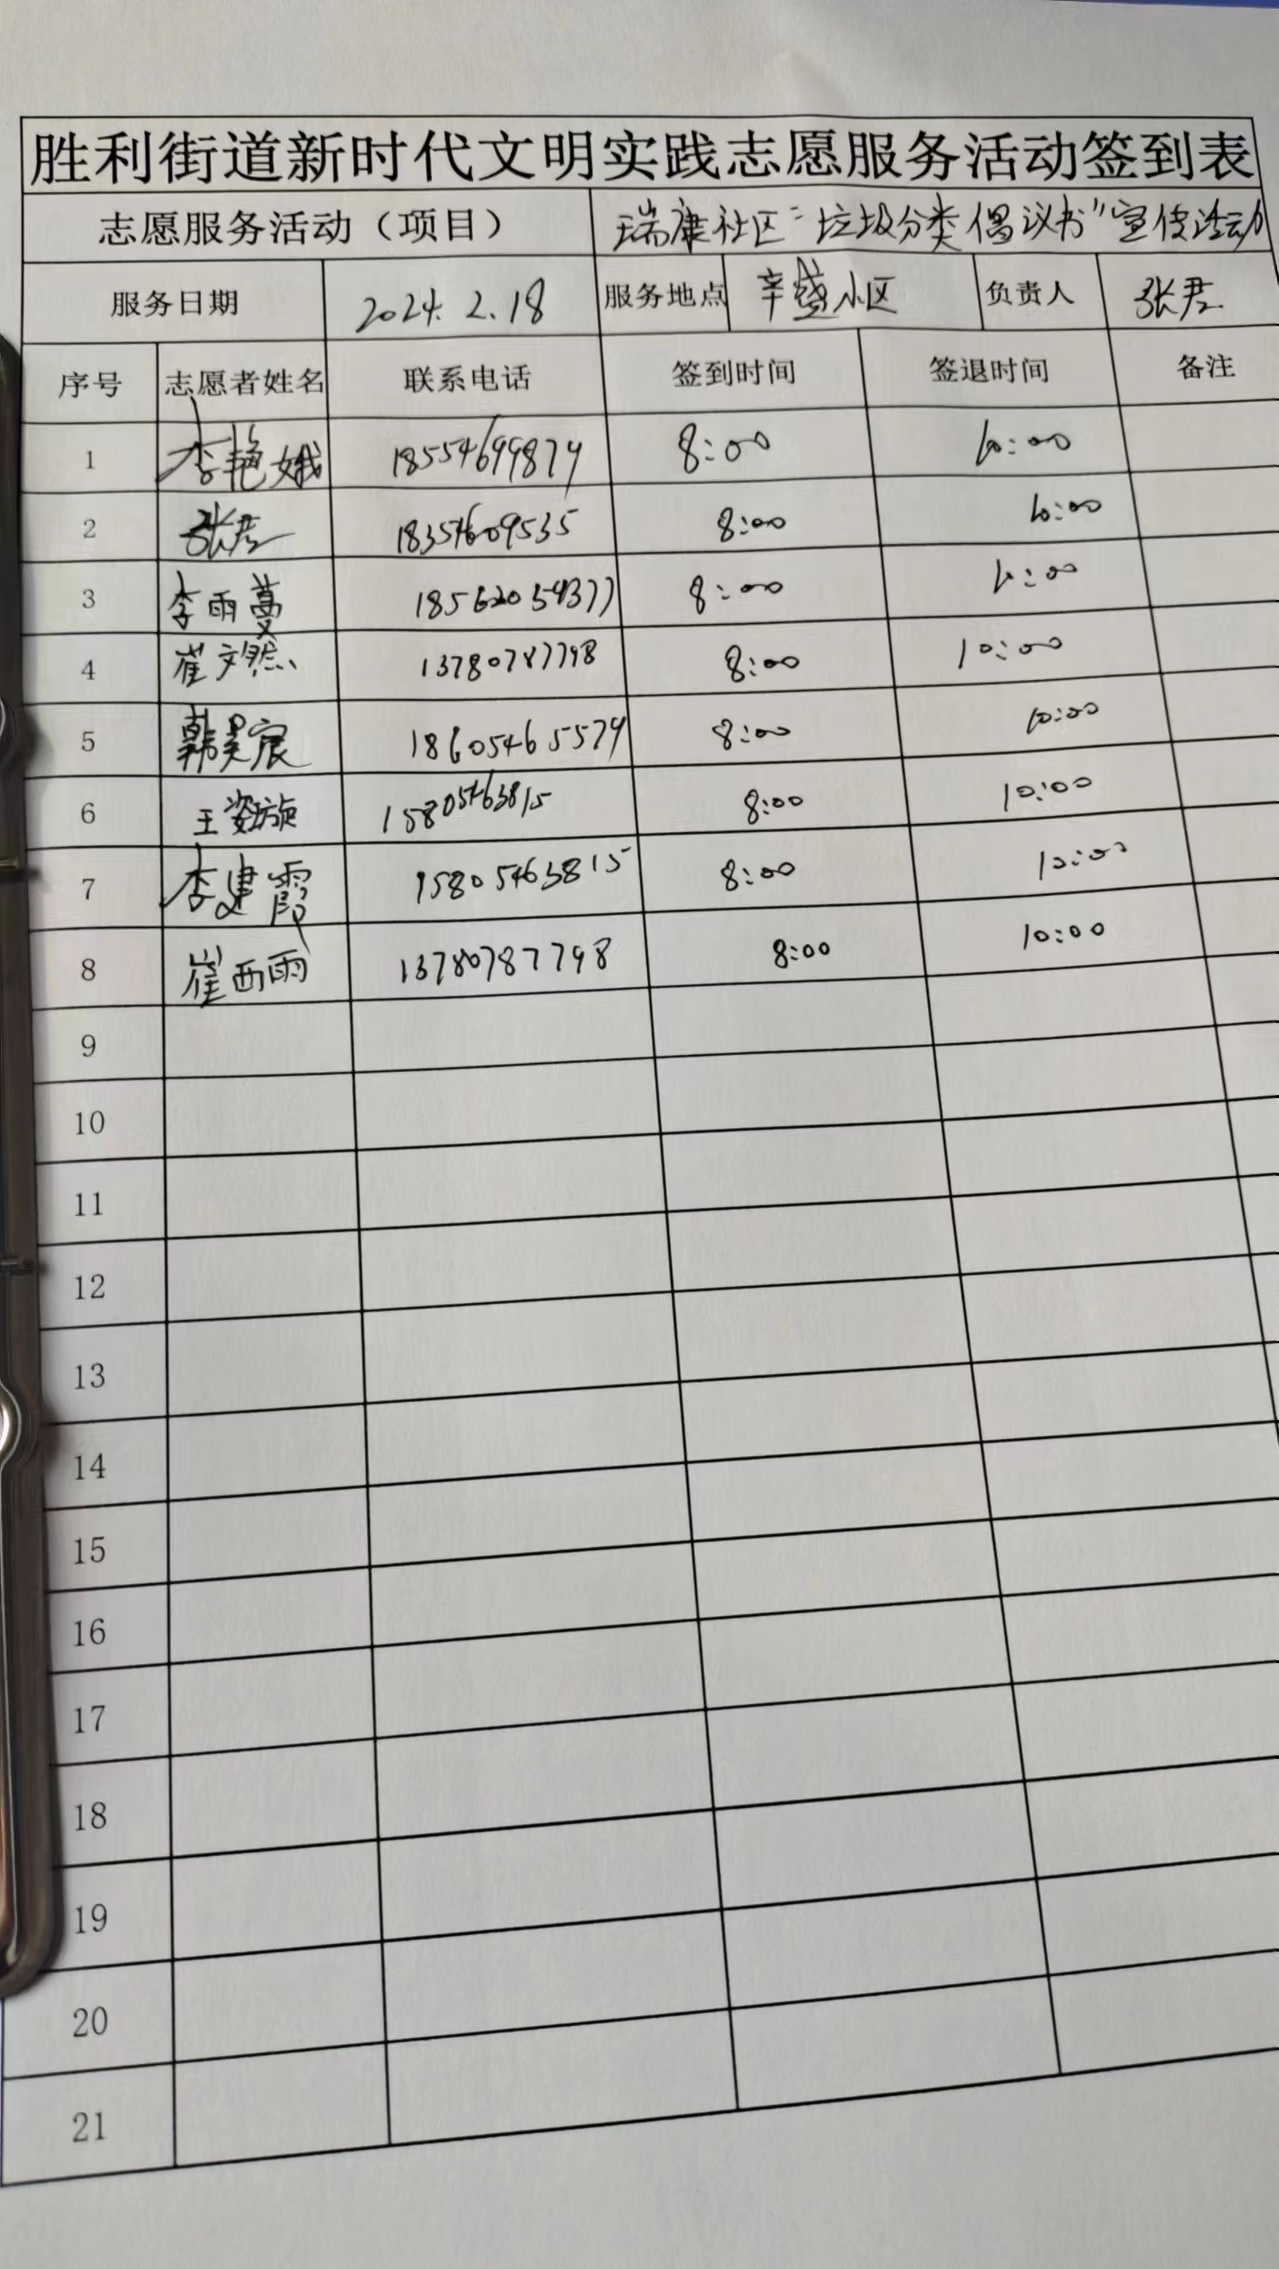 胜利街道新时代文明实践志愿服务活动签到表
志愿服务活动（项目） 瑞康社区“垃圾分类倡议书”宣传活动
服务日期 2024.2.18 服务地点 辛盛小区 负责人 张君
序号 志愿者姓名 联系电话 签到时间 签退时间 备注
1 李艳娥 18554699879 8:00 10:00
2 张君 18354609535 8:00 10:00
3 李雨蔓 18562054377 8:00 10:00
4 崔文然 13780787798 8:00 10:00
5 韩昊宸 18605465579 8:00 10:00
6 王姿旋 15805463815 8:00 10:00
7 李建霞 15805463815 8:00 10:00
8 崔西雨 13780787798 8:00 10:00
9
10
11
12
13
14
15
16
17
18
19
20
21